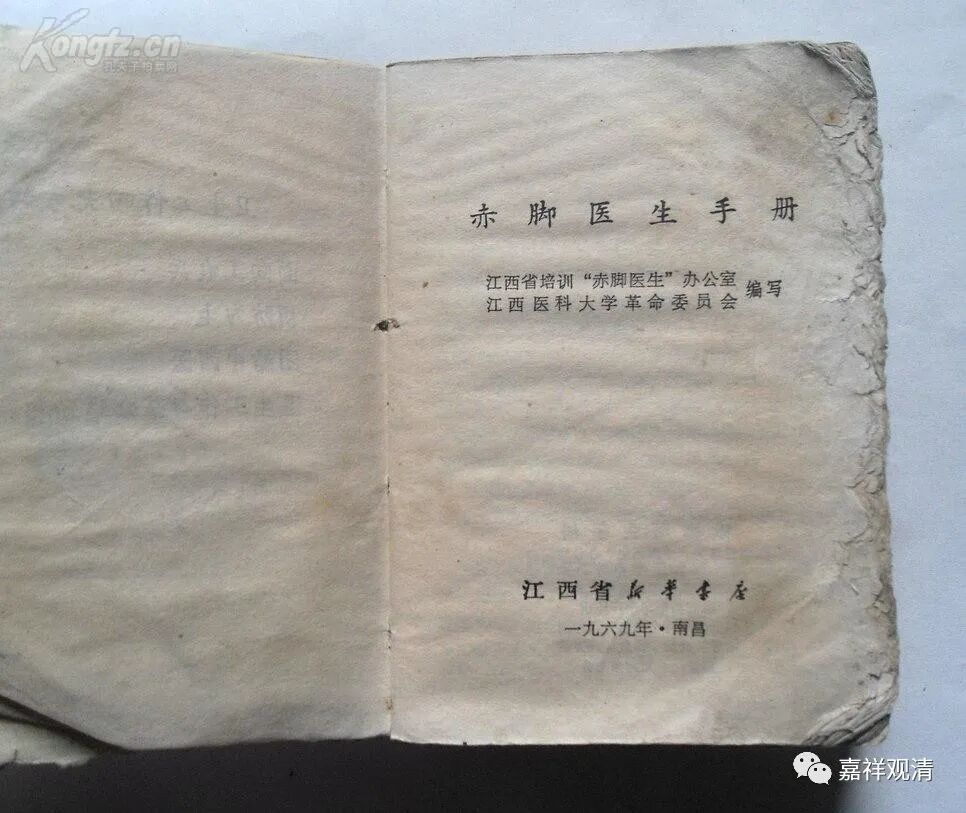 Kongfz.cn
赤脚医生手册
江西省培训“赤脚医生”办公室
江西医科大学革命委员会 编写
江西省新华书店
一九六九年·南昌
嘉祥观清